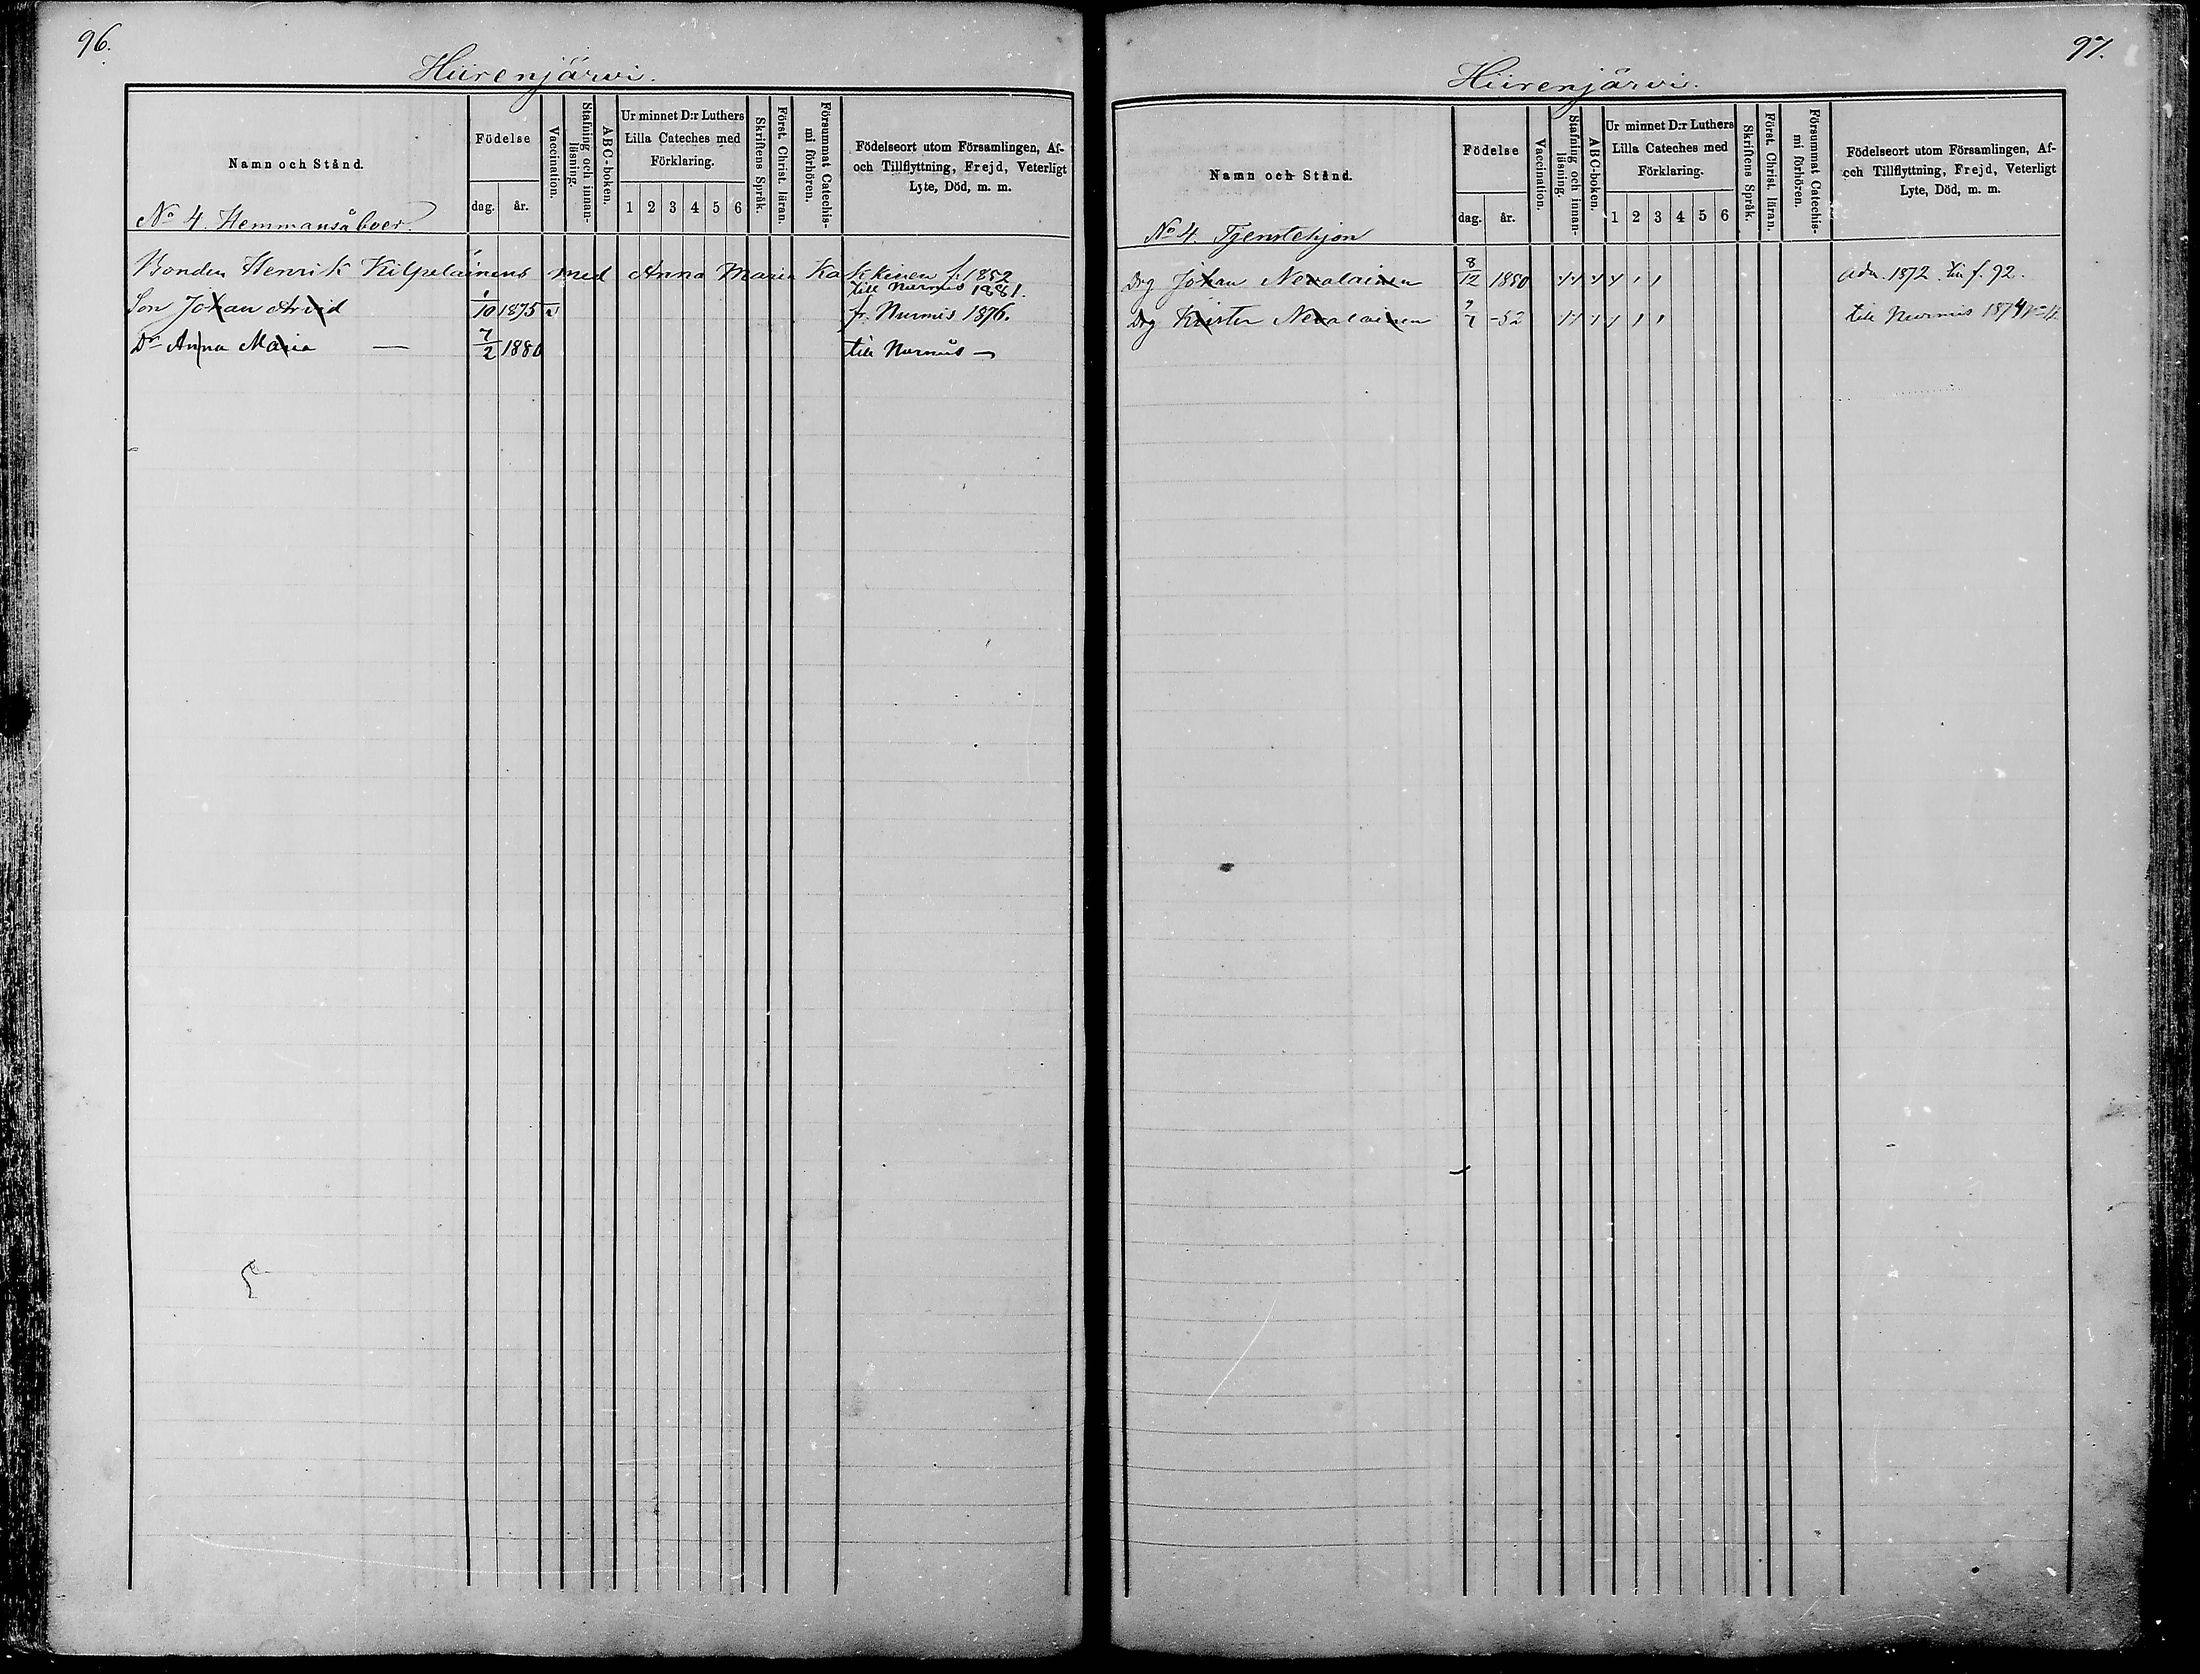 96.
Hiirenjärvi.
Namn och Stånd.
Födelse
dag.
år.
Vaccination.
Stafning och innan-
läsning.
ABC-boken.
Ur minnet D:r Luthers
Lilla Cateches med
Förklaring.
1 2 3 4 5 6
Skriftens Språk.
Först. Christ. läran.
Försummat Catechis-
mi förhören.
Födelseort utom Församlingen, Af-
och Tillflyttning, Frejd, Veterligt
Lyte, Död, m. m.
No 4. Hemmansåboer.
Bonden Henrik Kilpeläinens med Anna Maria Kakkinen f. 1852
till Nurmis 1881.
Son Johan Arvid 1/10 1875 v fr. Nurmis 1876.
Dr Anna Maria — 7/2 1880 till Nurmis —
97.
Hiirenjärvi.
Namn och Stånd.
Födelse
dag.
år.
Vaccination.
Stafning och innan-
läsning.
ABC-boken.
Ur minnet D:r Luthers
Lilla Cateches med
Förklaring.
1 2 3 4 5 6
Skriftens Språk.
Först. Christ. läran.
Försummat Catechis-
mi förhören.
Födelseort utom Församlingen, Af-
och Tillflyttning, Frejd, Veterligt
Lyte, Död, m. m.
No 4. Tjenstehjon
Drg Johan Nevalainen 8/12 1850 adm. 1872. f. 92.
Drg Krister Nevalainen -52 till Nurmis 1874